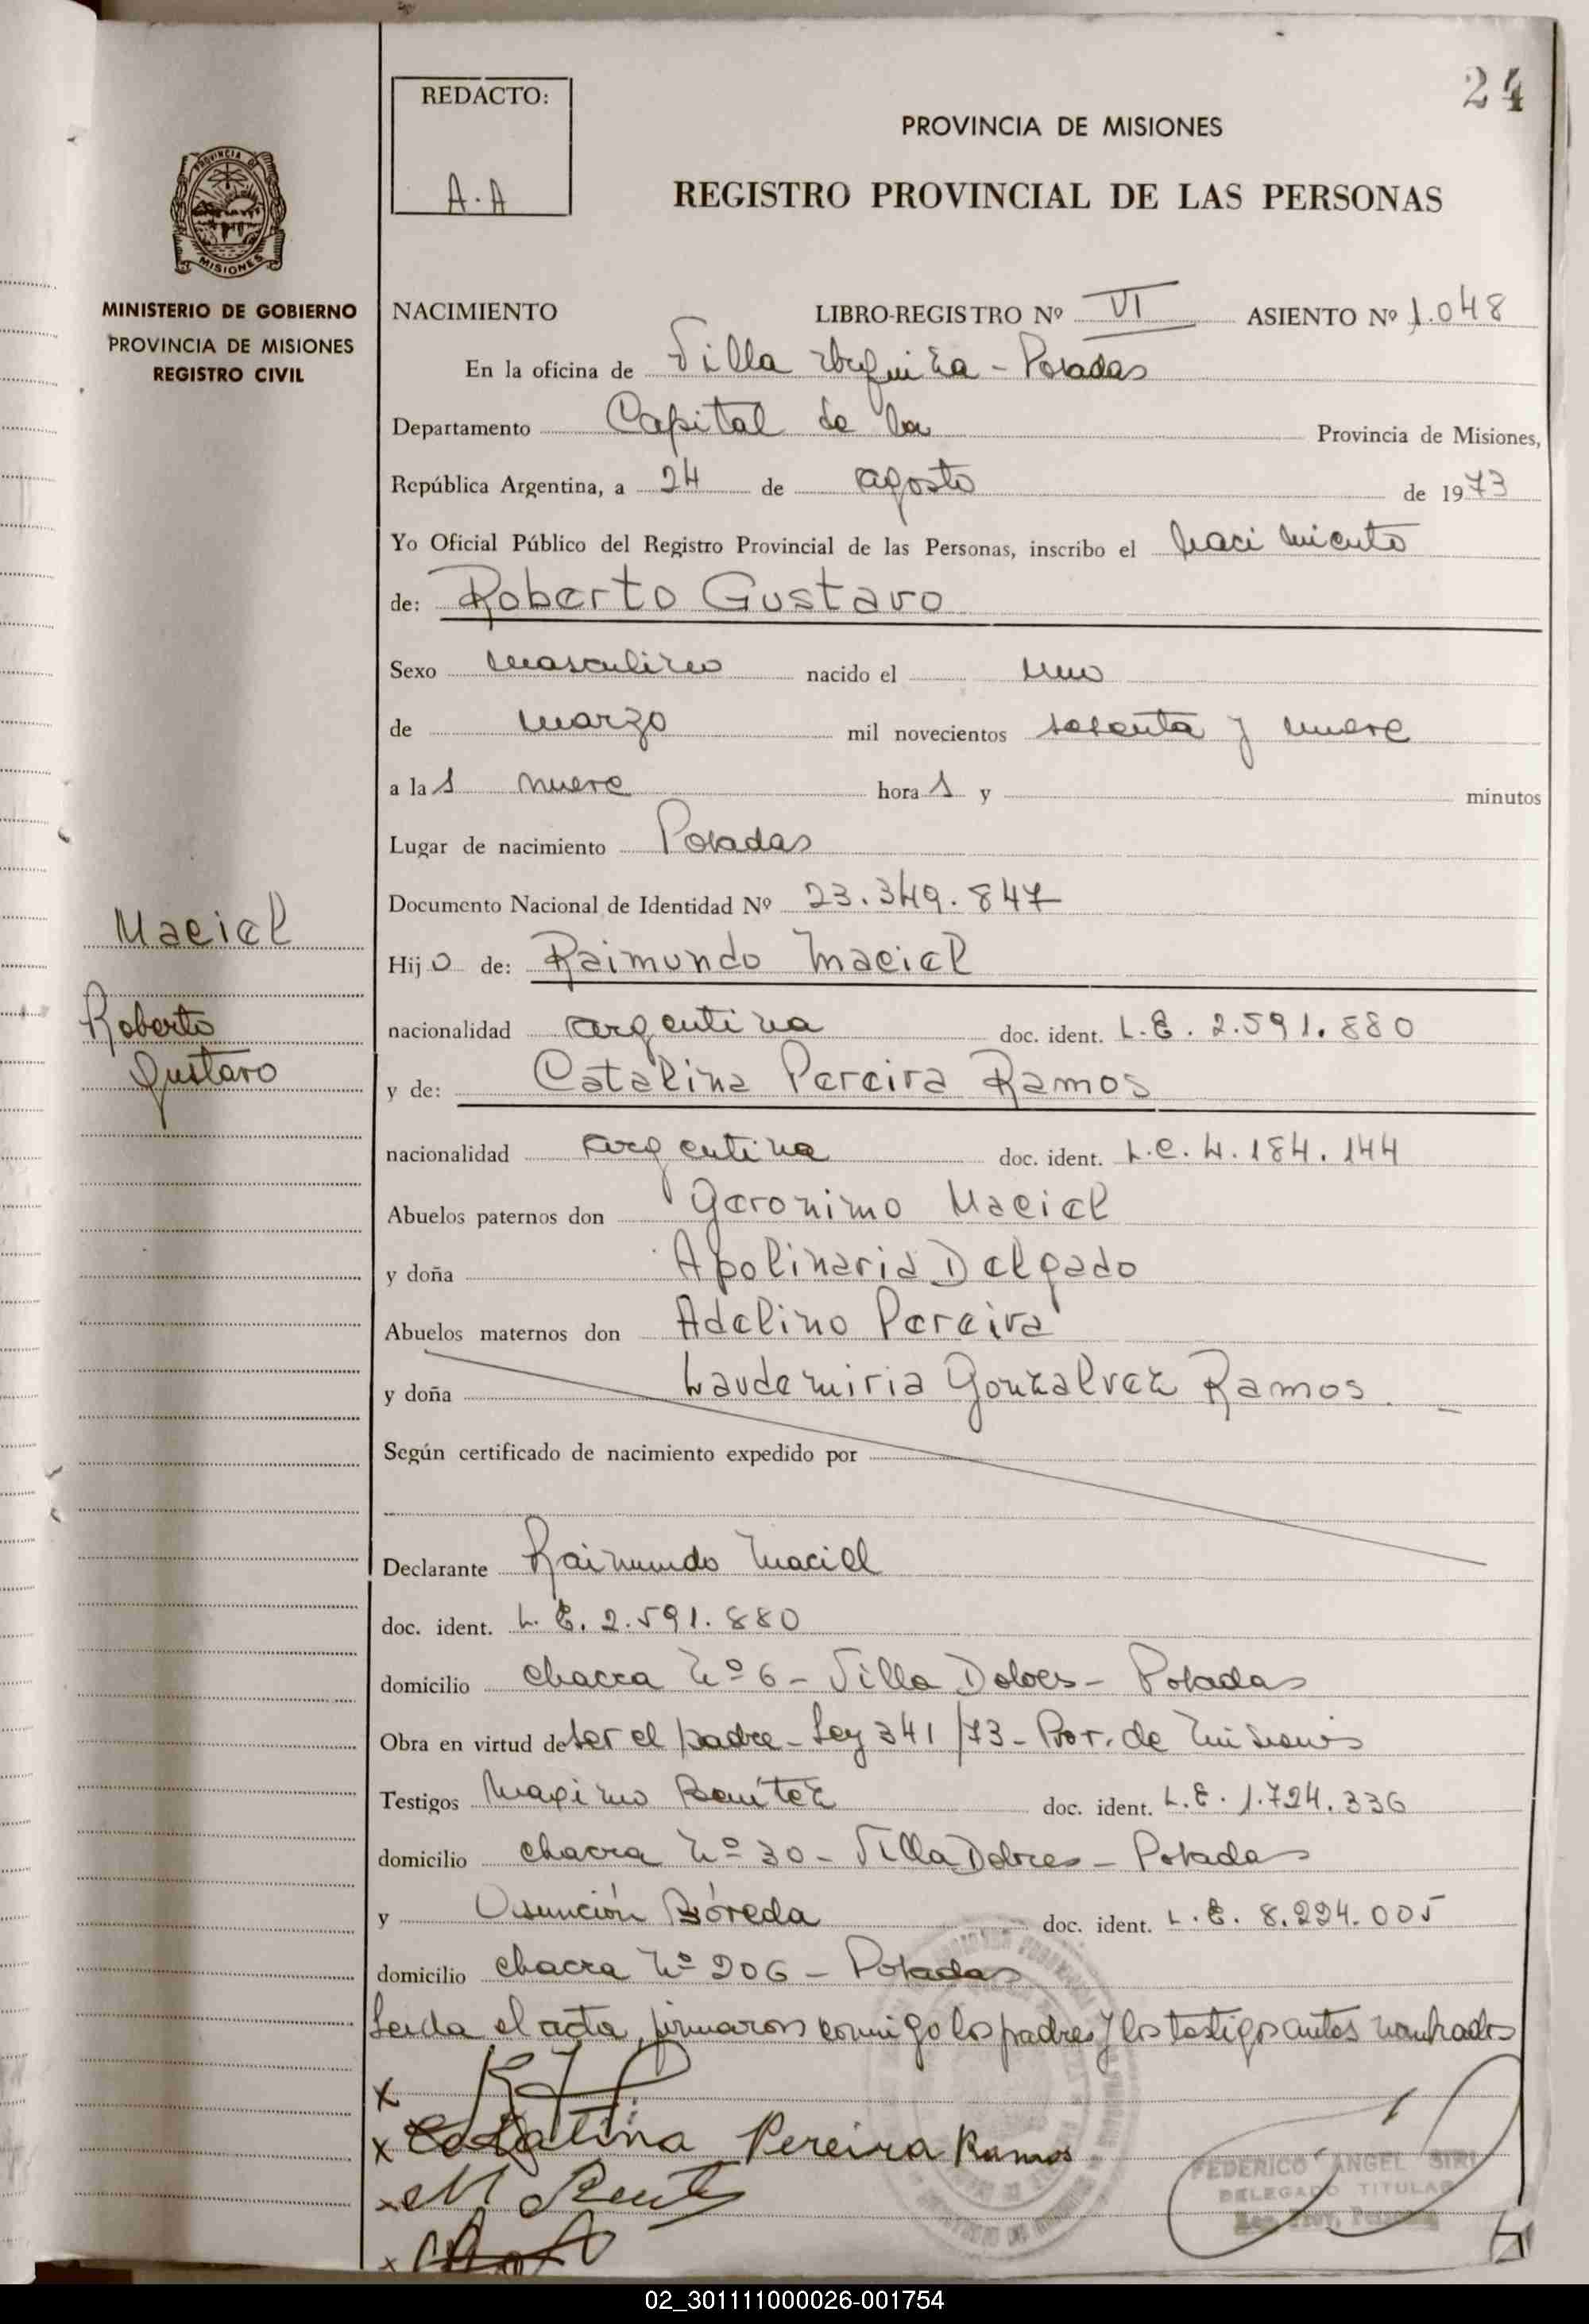 24
REDACTO:
A.A
PROVINCIA DE MISIONES
REGISTRO PROVINCIAL DE LAS PERSONAS
PROVINCIA DE
MISIONES
MINISTERIO DE GOBIERNO
PROVINCIA DE MISIONES
REGISTRO CIVIL
NACIMIENTO LIBRO-REGISTRO Nº VI ASIENTO Nº 1.048
En la oficina de Villa Urquiza - Posadas
Departamento Capital de la Provincia de Misiones,
República Argentina, a 24 de agosto de 1973
Yo Oficial Público del Registro Provincial de las Personas, inscribo el nacimiento
de: Roberto Gustavo
Sexo masculino nacido el uno
de marzo mil novecientos sesenta y nueve
a las nueve horas y minutos
Lugar de nacimiento Posadas
Documento Nacional de Identidad Nº 23.349.847
Maciel
Roberto
Gustavo
Hijo de: Raimundo Maciel
nacionalidad argentina doc. ident. L.E. 2.591.880
y de: Catalina Pereira Ramos
nacionalidad argentina doc. ident. L.C. 4.184.144
Abuelos paternos don Geronimo Maciel
y doña Apolinaria Delgado
Abuelos maternos don Adelino Pereira
y doña Laudemiria Gonzalvez Ramos. -
Según certificado de nacimiento expedido por
Declarante Raimundo Maciel
doc. ident. L.E. 2.591.880
domicilio chacra Nº 6 - Villa Dolores - Posadas
Obra en virtud de ser el padre - Ley 341/73 - Prov. de Misiones
Testigos Maximo Benitez doc. ident. L.E. 1.724.336
domicilio chacra Nº 30 - Villa Dolores - Posadas
y Asunción Bóveda doc. ident. L.E. 8.224.005
domicilio chacra Nº 206 - Posadas
Leida el acta, firmaron conmigo los padres y los testigos antes nombrados
x
x Catalina Pereira Ramos
x M Benitez
x
FEDERICO ANGEL SIRI
DELEGADO TITULAR
02_301111000026-001754